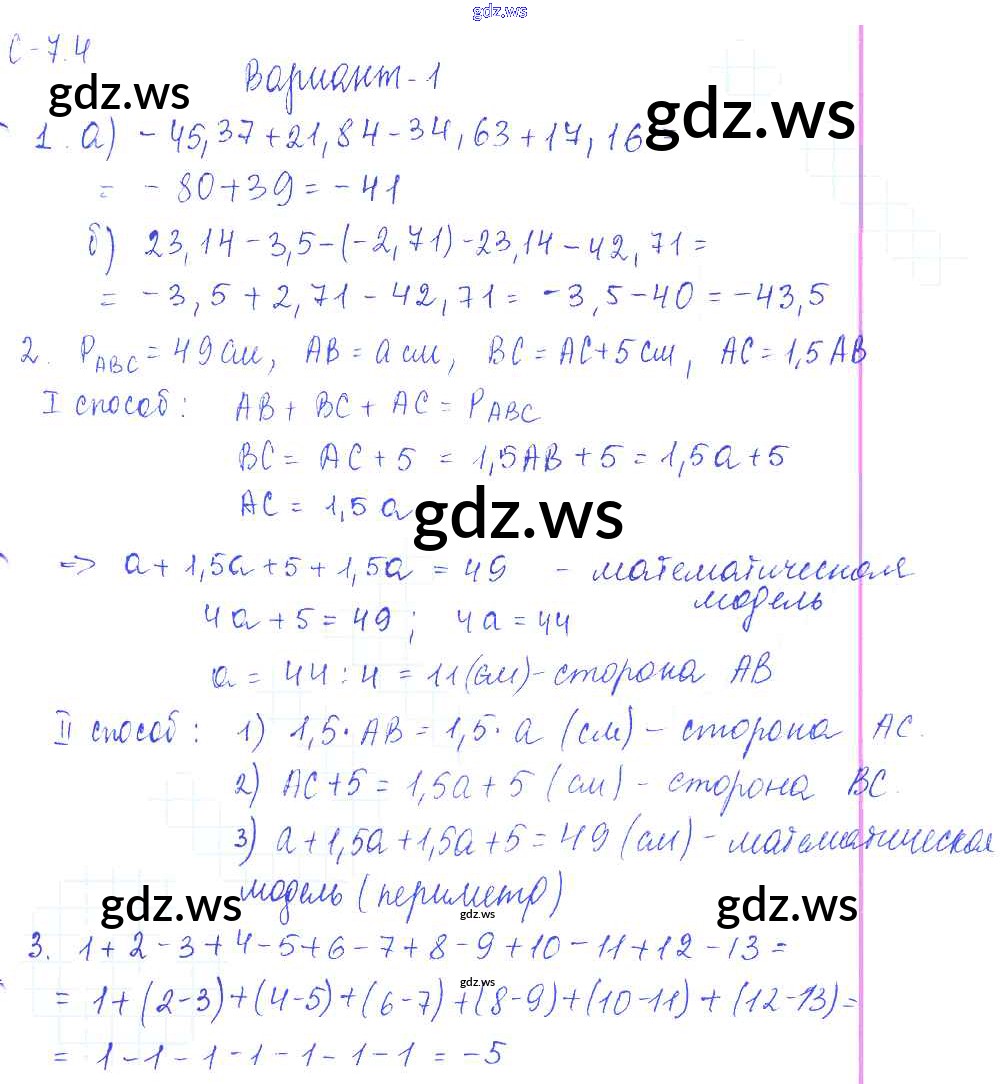 gdz.ws
С-7.4
gdz.ws
Вариант-1
gdz.ws
1. а) -45,37+21,84-34,63+17,16
= -80+39=-41
б) 23,14-3,5-(-2,71)-23,14-42,71=
= -3,5+2,71-42,71=-3,5-40=-43,5
2. P_ABC=49см, AB=a см, BC=AC+5см, AC=1,5AB
I способ: AB+BC+AC=P_ABC
BC=AC+5=1,5AB+5=1,5a+5
AC=1,5a
gdz.ws
=> a+1,5a+5+1,5a=49 - математическая
модель
4a+5=49; 4a=44
a=44:4=11(см)-сторона AB
II способ: 1) 1,5·AB=1,5·a (см)-сторона AC.
2) AC+5=1,5a+5 (см)-сторона BC.
3) a+1,5a+1,5a+5=49 (см)-математическая
модель (периметр)
gdz.ws
gdz.ws
gdz.ws
3. 1+2-3+4-5+6-7+8-9+10-11+12-13=
gdz.ws
= 1+(2-3)+(4-5)+(6-7)+(8-9)+(10-11)+(12-13)=
gdz.ws
= 1-1-1-1-1-1-1=-5